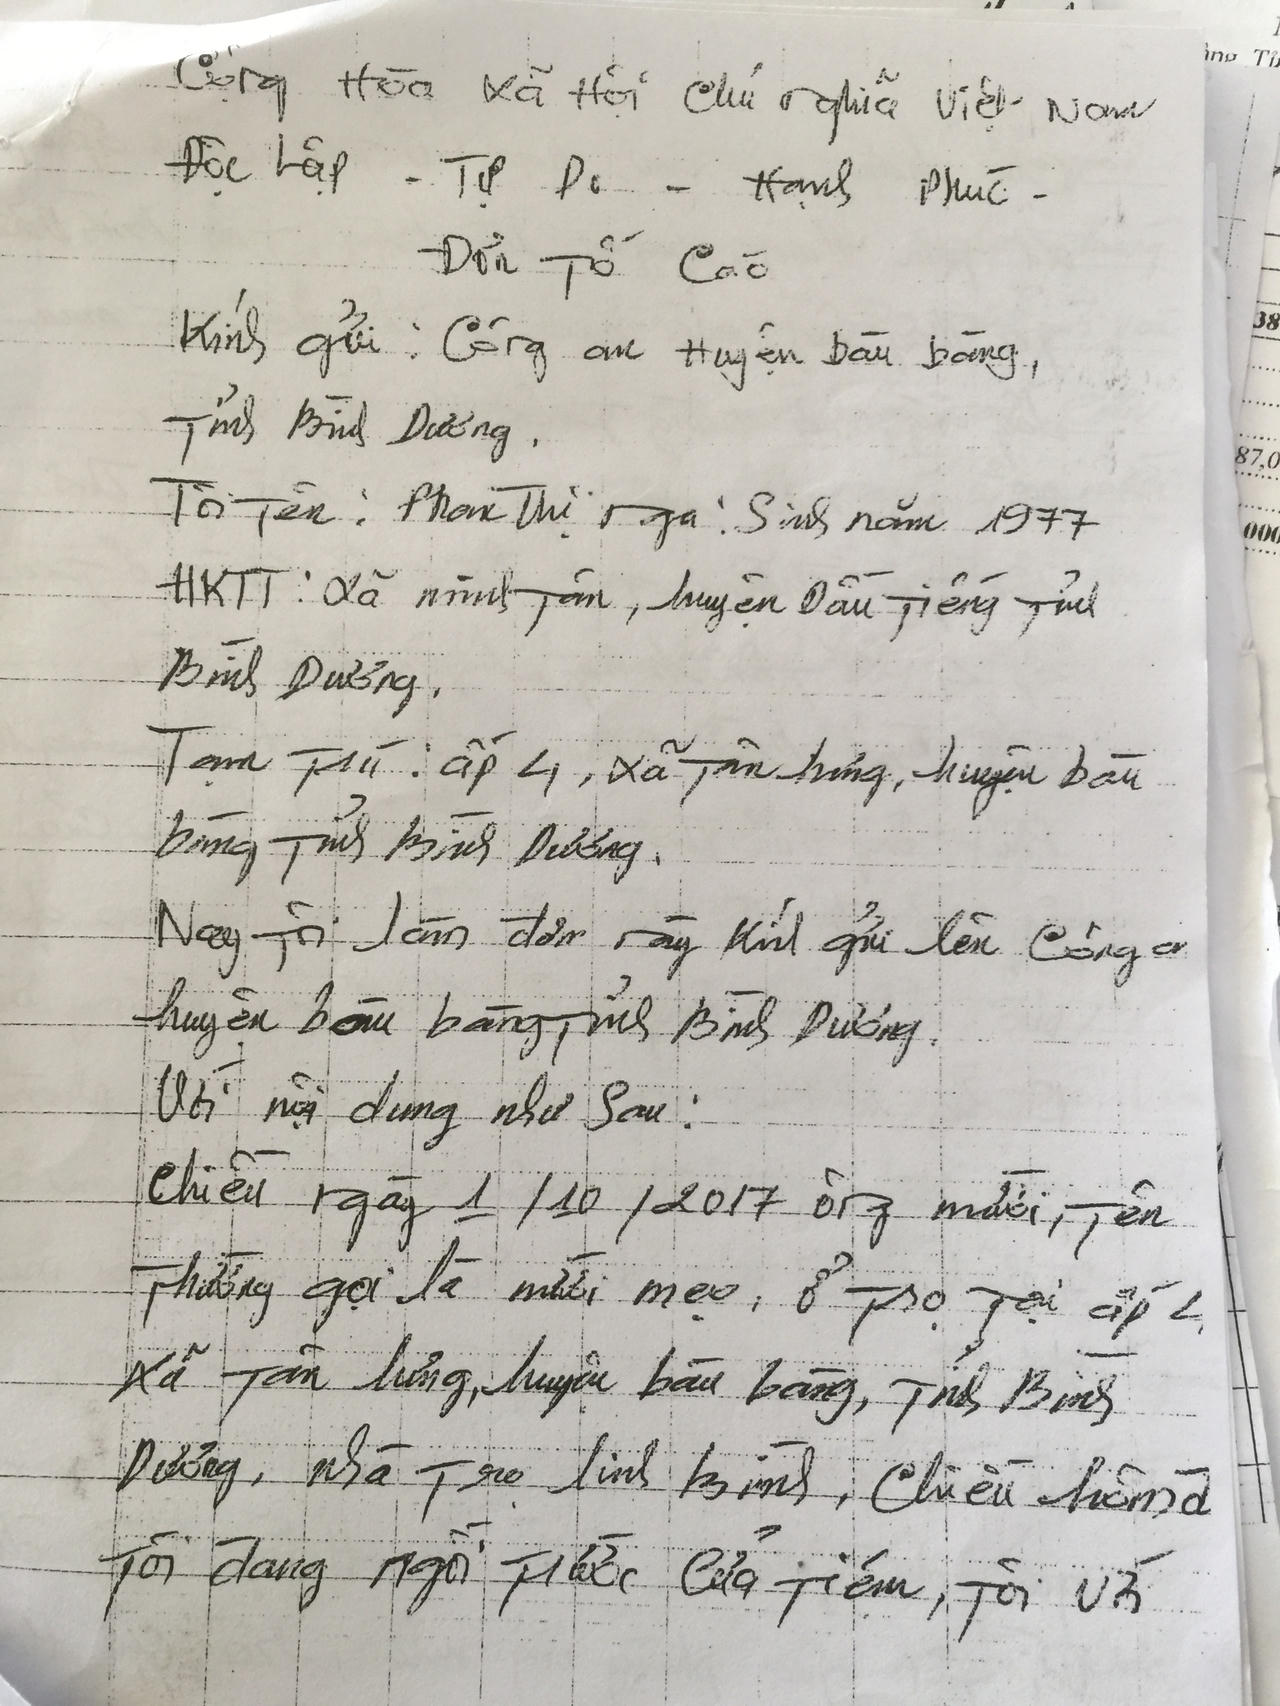 Cộng Hòa Xã Hội Chủ nghĩa Việt Nam
Độc Lập - Tự Do - Hạnh Phúc -
Đơn Tố Cáo
Kính gửi : Công an Huyện bàu bàng,
Tỉnh Bình Dương.
Tôi Tên : Phan Thị nga : Sinh năm 1977
HKTT : Xã minh Tân, huyện Dầu Tiếng Tỉnh
Bình Dương.
Tạm Trú : ấp 4, xã Tân hưng, huyện bàu
bàng Tỉnh Bình Dương.
Nay Tôi làm đơn này Kính gửi lên Công a
huyện bàu bàng Tỉnh Bình Dương.
Với nội dung như Sau :
Chiều ngày 1/10/2017 ông mười, Tên
Thường gọi là mười mẹo, ở Trọ Tại ấp 4,
xã Tân hưng, huyện bàu bàng, Tỉnh Bình
Dương, nhà Trọ linh Bình, Chiều hôm đ
Tôi đang ngồi Trước Cửa Tiệm, Tôi với